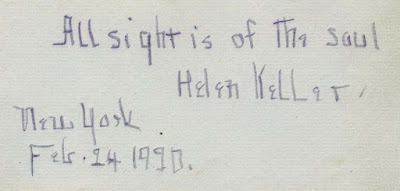 All sight is of the soul
Helen Keller,
New York
Feb. 24 1920.